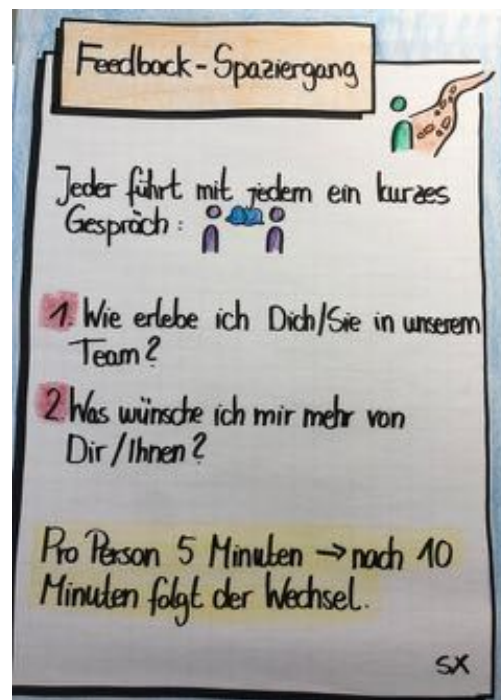 Feedback-Spaziergang
Jeder führt mit jedem ein kurzes
Gespräch:
1. Wie erlebe ich Dich/Sie in unserem
Team?
2 Was wünsche ich mir mehr von
Dir/Ihnen?
Pro Person 5 Minuten → nach 10
Minuten folgt der Wechsel.
SX